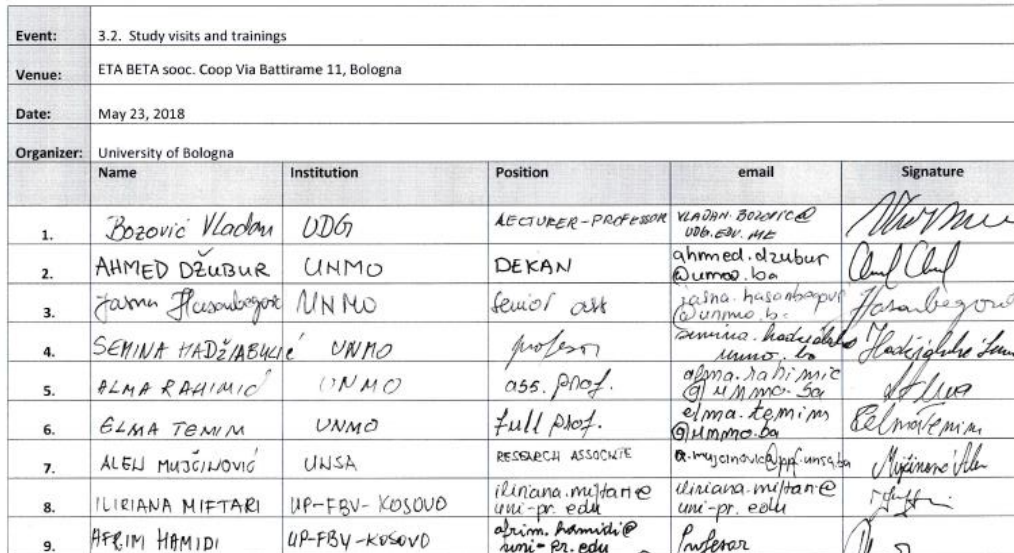 Event: 3.2. Study visits and trainings
Venue: ETA BETA sooc. Coop Via Battirame 11, Bologna
Date: May 23, 2018
Organizer: University of Bologna
Name Institution Position email Signature
1. Bozović Vladan UDG LECTURER-PROFESSOR VLADAN.BOZOVIC@
UDG.EDU.ME
2. AHMED DŽUBUR UNMO DEKAN ahmed.dzubur
@unmo.ba
3. Jasna Hasanbegović UNMO Senior ass jasna.hasanbegovic
@unmo.b. Hasanbegović
4. SEMINA HADŽIABULIĆ UNMO profesor
unmo.ba
5. ALMA RAHIMIĆ UNMO ass. prof. alma.rahimic
@unmo.ba Alma
6. ELMA TEMIM UNMO full prof. elma.temim
@unmo.ba Elma Temim
7. ALEN MUJČINOVIĆ UNSA RESEARCH ASSOCIATE a.mujcinovic@ppf.unsa.ba
8. ILIRIANA MIFTARI UP-FBV-KOSOVO iliriana.miftari@
uni-pr.edu iliriana.miftari@
uni-pr.edu
9. AFRIM HAMIDI UP-FBV-KOSOVO afrim.hamidi@
uni-pr.edu Profesor